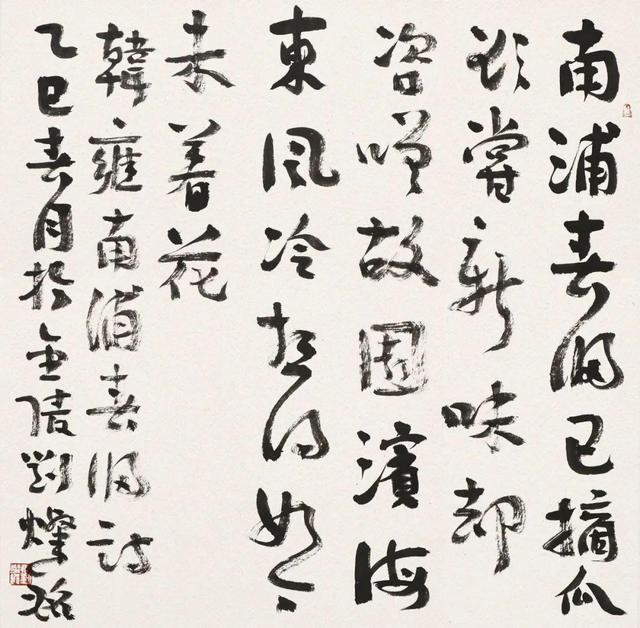 南浦春歸已摘瓜
欲嘗新味却
咨嗟故園濱海
東風冷想得如今
未着花
韓雍南浦春歸詩
乙巳春月於金陵劉燦銘